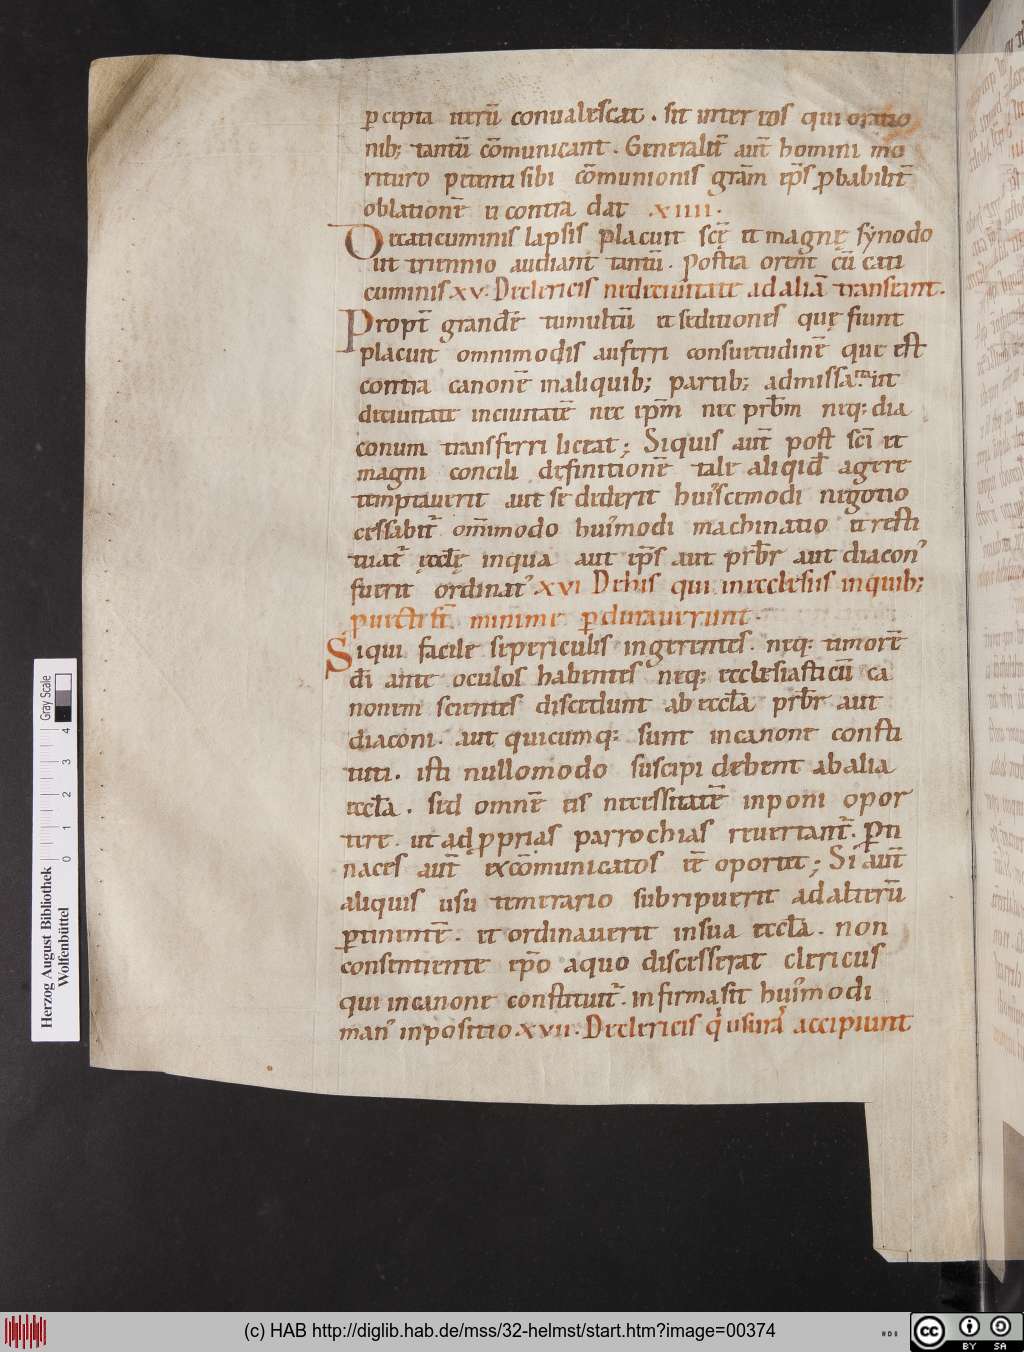 p̲cepta iterū conualescat . sit inter eos qui oratio
nib; tantū cōmunicant . Generalit̄ aut̄ homini mo
rituro petenti sibi cōmunionis grām ep̄s p̲babilit̄
oblationē et contra dat .XIIII.
De catecuminis lapsis placuit scę̄ et magnę synodo
ut triennio audiant tantū . Postea orent cū cate
cuminis .XV. De clericis ne de ciuitate ad aliā transeant.
Propt̄ grandē tumultū et seditiones quę fiunt
placuit omnimodis auferri consuetudinē que est
contra canonē in aliquib; partib; admissa . ita ut
de ciuitate in ciuitatē nec ep̄m nec prb̄m neq; dia
conum transferri liceat ; Siquis aut̄ post sc̄i et
magni concilii definitionē tale aliqid agere
temptauerit aut se dederit huiꝰscemodi negotio
cessabit̄ om̄imodo huiꝰmodi machinatio et resti
tuat̄ ęccl̄ę in qua aut ep̄s aut prb̄r aut diaconꝰ
fuerit ordinatꝰ .XVI De his qui in ecclesiis in quib;
puecti st̄ minime p̲durauerunt .
Siqui facile se periculis ingerentes . neq; timorē
dī ante oculos habentes neq; ecclesiasticū ca
nonem scientes discedunt ab eccl̄a prb̄r aut
diaconi . aut quicumq; sunt in canone consti
tuti . isti nullomodo suscipi debent ab alia
eccl̄a . sed omnē eis necessitatē inponi opor
tere . ut ad p̲prias parrochias reuertant̄ . P̲ti
naces aut̄ excōmunicatos eē oportet ; Si aut̄
aliquis usu temerario subripuerit ad alterū
p̲tinentē . et ordinauerit in sua eccl̄a . non
consentiente ep̄o a quo discesserat clericus
qui in canone constituit̄ . infirma sit huiꝰmodi
manꝰ inpositio .XVII. De clericis qͥ usurā accipiunt
Herzog August Bibliothek
Wolfenbüttel
0 1 2 3 4
Gray Scale
(c) HAB http://diglib.hab.de/mss/32-helmst/start.htm?image=00374
cc BY SA